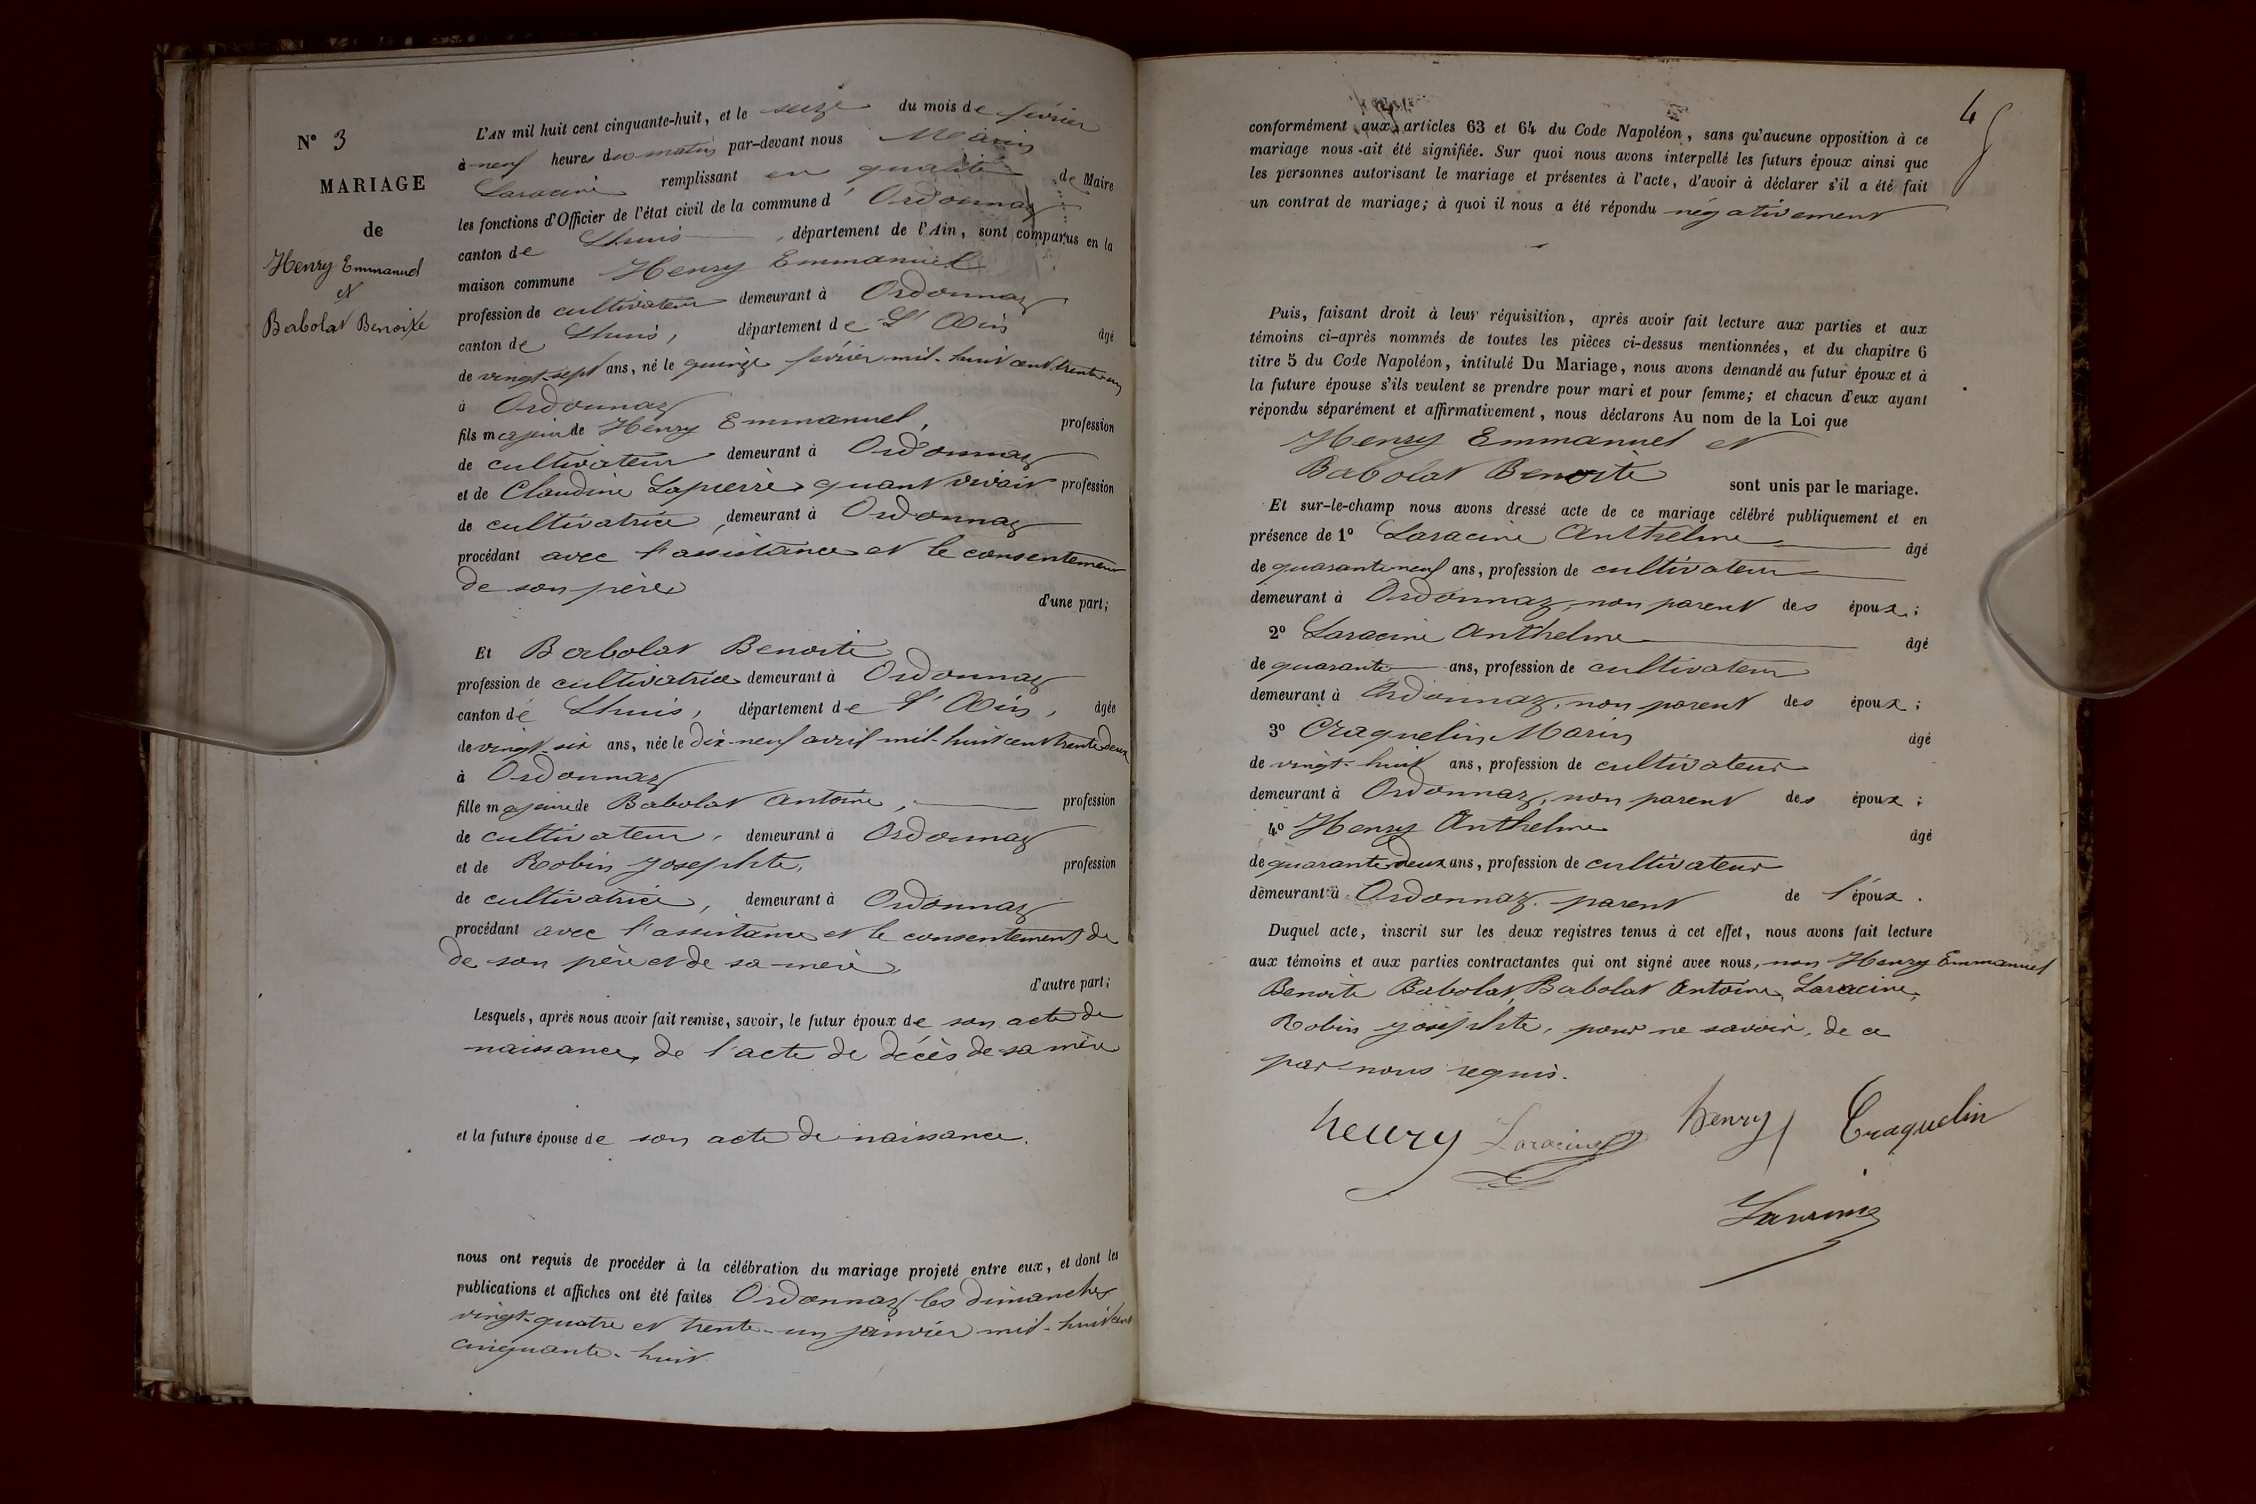 N° 3
MARIAGE
de
Henry Emmanuel
et
Babolat Benoite
L'AN mil huit cent cinquante-huit, et le seize du mois de février
à neuf heures du matin par-devant nous Marin
Laracine remplissant en qualité de Maire
les fonctions d'Officier de l'état civil de la commune d' Ordonnaz
canton de Lhuis, département de l'Ain, sont comparus en la
maison commune Henry Emmanuel
profession de cultivateur demeurant à Ordonnaz
canton de Lhuis, département de L'Ain âgé
de vingt-sept ans, né le quinze février mil-huit cent trente-un
à Ordonnaz
fils majeur de Henry Emmanuel, profession
de cultivateur demeurant à Ordonnaz
et de Claudine Lapierre quant vivait profession
de cultivatrice, demeurant à Ordonnaz
procédant avec l'assistance et le consentement
de son père
d'une part;
Et Babolat Benoite
profession de cultivatrice demeurant à Ordonnaz
canton de Lhuis, département de L'Ain, âgée
de vingt-six ans, née le dix-neuf avril mil-huit cent trente-deux
à Ordonnaz
fille majeure de Babolat Antoine, profession
de cultivateur, demeurant à Ordonnaz
et de Robin Josephte, profession
de cultivatrice, demeurant à Ordonnaz
procédant avec l'assistance et le consentement de
de son père et de sa mère
d'autre part;
Lesquels, après nous avoir fait remise, savoir, le futur époux de son acte de
naissance, de l'acte de décès de sa mère
et la future épouse de son acte de naissance.
nous ont requis de procéder à la célébration du mariage projeté entre eux, et dont les
publications et affiches ont été faites Ordonnaz les dimanches
vingt-quatre et trente-un janvier mil-huit cent
cinquante-huit.
4
conformément aux articles 63 et 64 du Code Napoléon, sans qu'aucune opposition à ce
mariage nous ait été signifiée. Sur quoi nous avons interpellé les futurs époux ainsi que
les personnes autorisant le mariage et présentes à l'acte, d'avoir à déclarer s'il a été fait
un contrat de mariage; à quoi il nous a été répondu négativement
Puis, faisant droit à leur réquisition, après avoir fait lecture aux parties et aux
témoins ci-après nommés de toutes les pièces ci-dessus mentionnées, et du chapitre 6
titre 5 du Code Napoléon, intitulé Du Mariage, nous avons demandé au futur époux et à
la future épouse s'ils veulent se prendre pour mari et pour femme; et chacun d'eux ayant
répondu séparément et affirmativement, nous déclarons Au nom de la Loi que
Henry Emmanuel et
Babolat Benoite sont unis par le mariage.
Et sur-le-champ nous avons dressé acte de ce mariage célébré publiquement et en
présence de 1° Laracine Anthelme âgé
de quarante neuf ans, profession de cultivateur
demeurant à Ordonnaz, non parent des époux;
2° Laracine Anthelme âgé
de quarante ans, profession de cultivateur
demeurant à Ordonnaz, non parent des époux;
3° Craquelin Marin âgé
de vingt-huit ans, profession de cultivateur
demeurant à Ordonnaz, non parent des époux;
4° Henry Anthelme âgé
de quarante deux ans, profession de cultivateur
demeurant à Ordonnaz. parent de l'époux.
Duquel acte, inscrit sur les deux registres tenus à cet effet, nous avons fait lecture
aux témoins et aux parties contractantes qui ont signé avec nous, non Henry Emmanuel
Benoite Babolat, Babolat Antoine, Laracine,
Robin Josephte, pour ne savoir, de ce
par nous requis.
henry Laracine henry Craquelin
Laracine